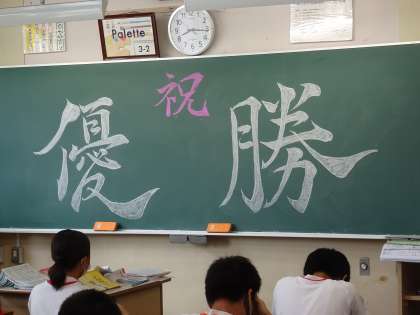 Palette
3-2
祝
優勝